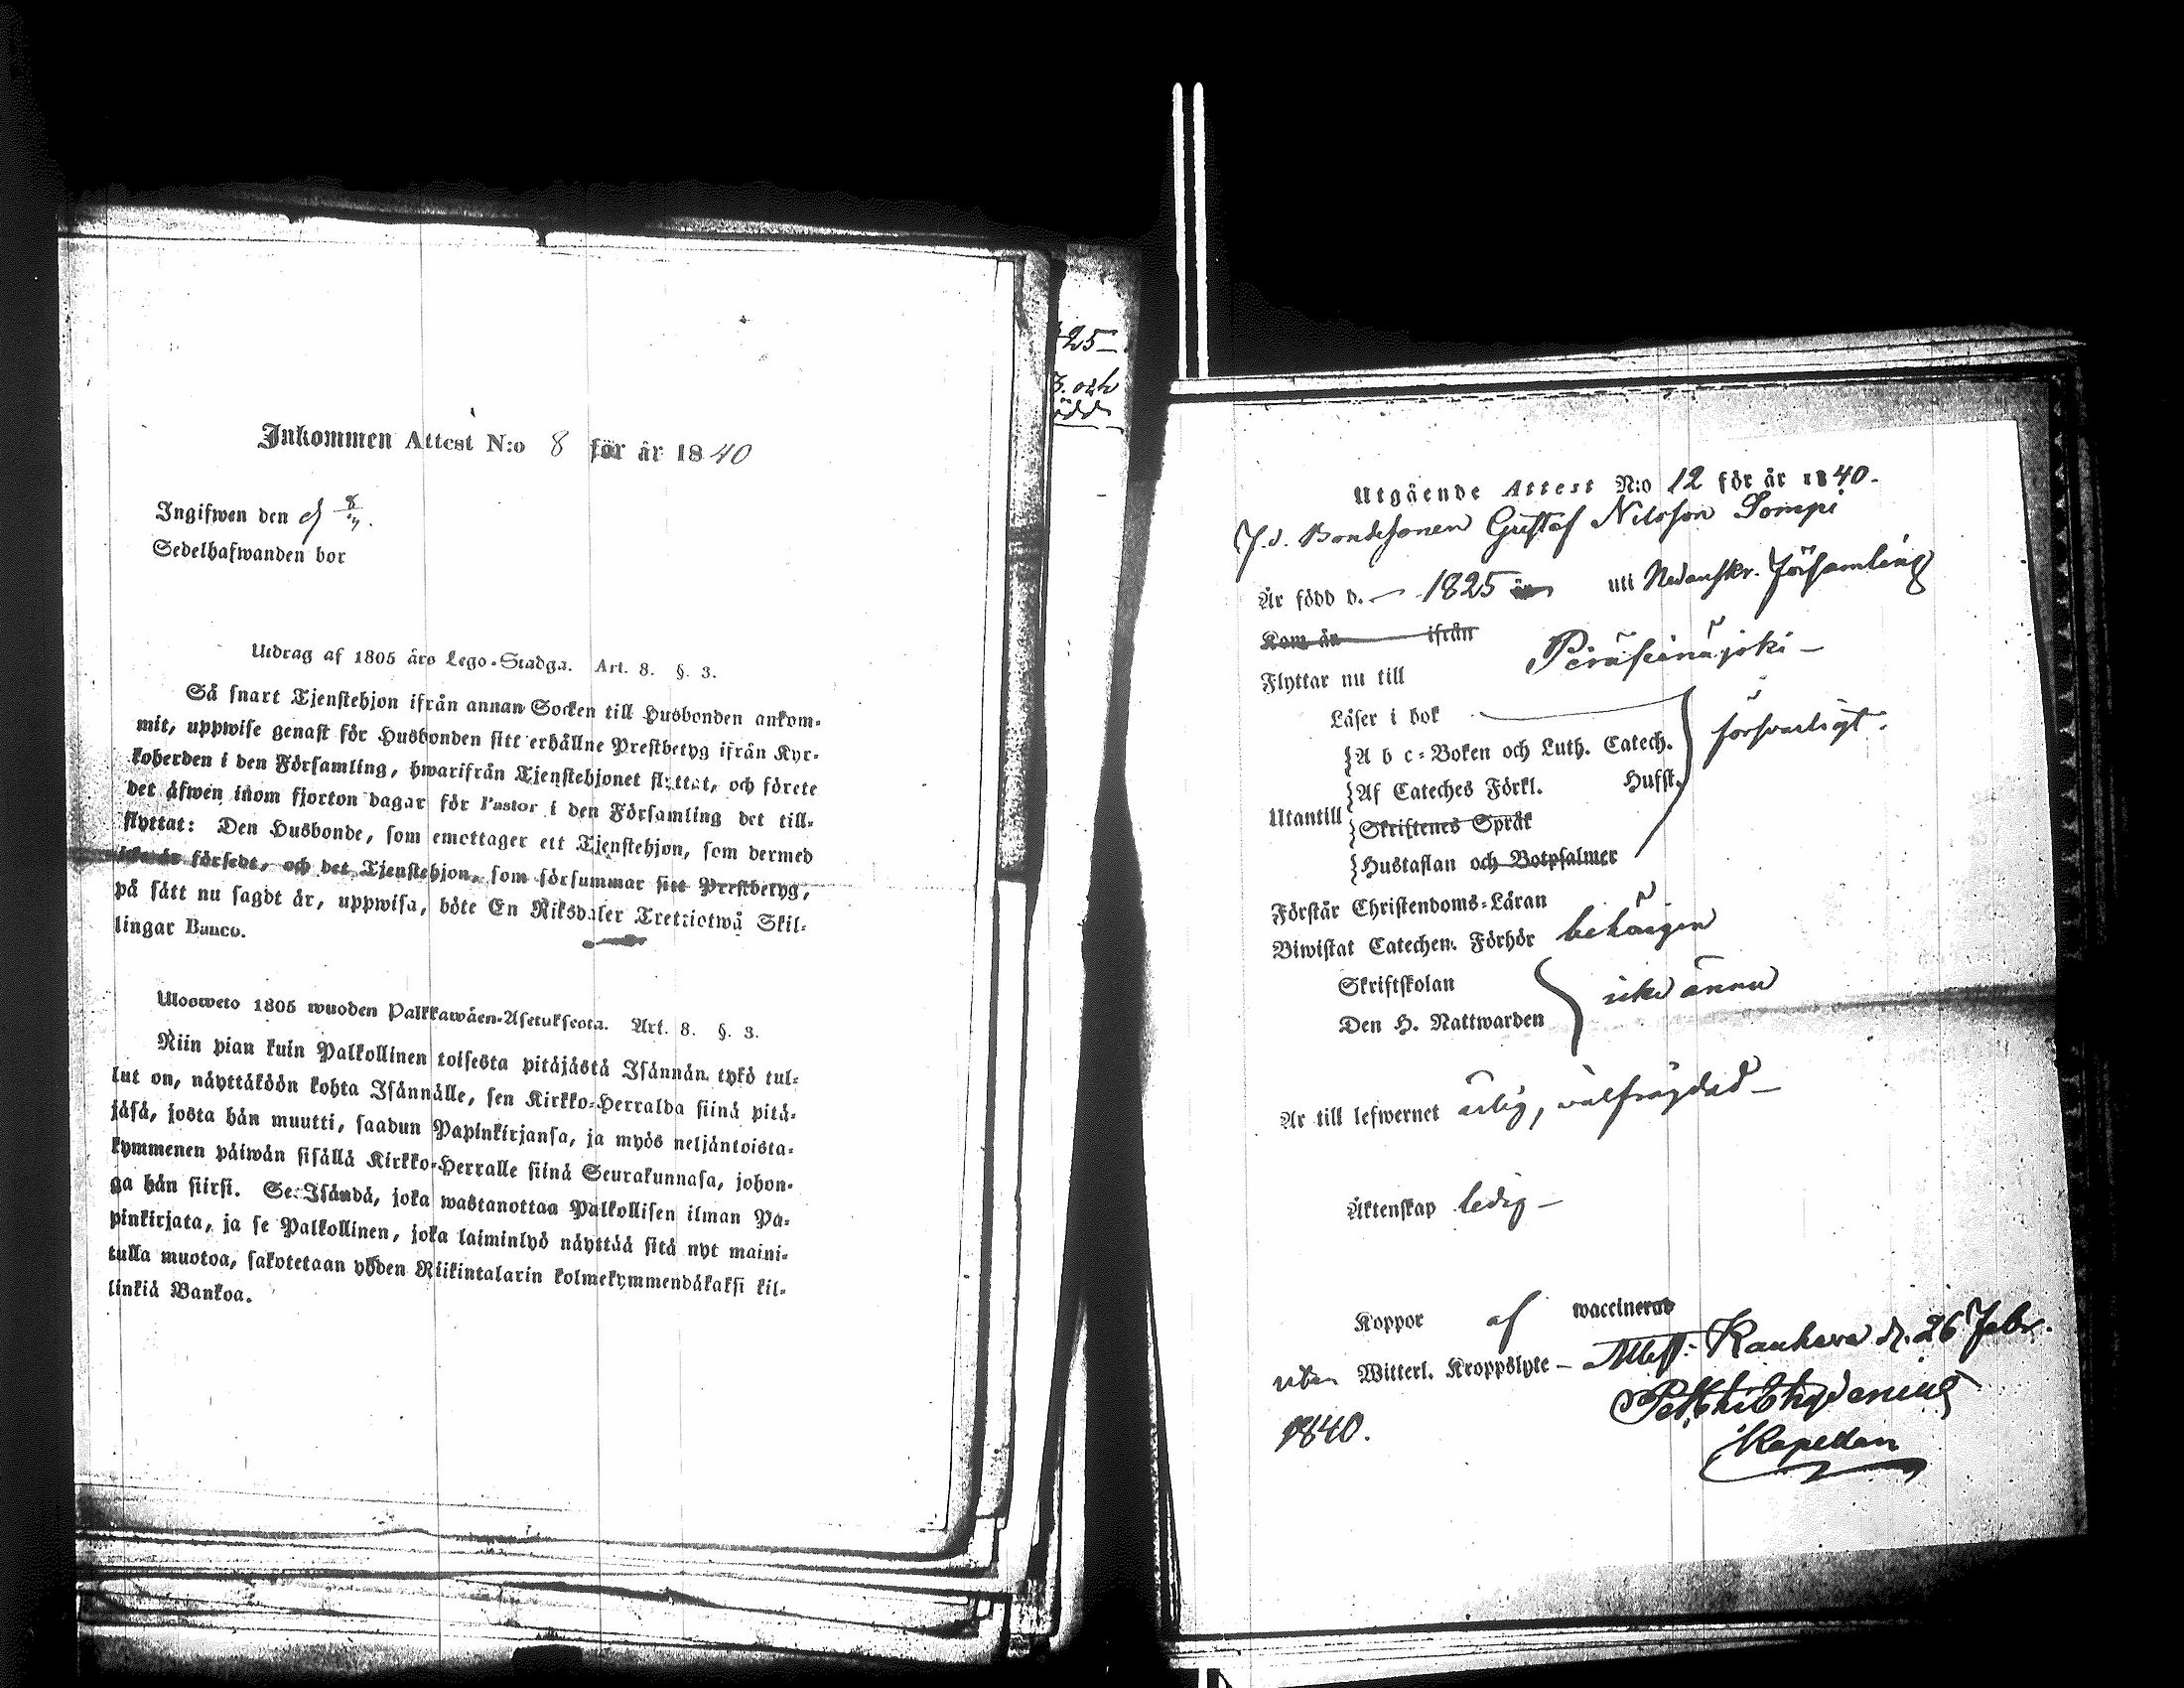 Inkommen Attest N:o 8 för år 1840
Ingifwen den
Sedelhafwanden bor
Utdrag af 1805 års Lego-Stadga. Art. 8. §. 3.
Så snart Tjenstehjon ifrån annan Socken till Husbonden ankom-
mit, uppwise genast för Husbonden sitt erhållne Prestbetyg ifrån Kyr-
koherden i den Församling, hwarifrån Tjenstehjonet flyttat, och förete
det äfwen inom fjorton dagar för Pastor i den Församling det till-
flyttat: Den Husbonde, som emottager ett Tjenstehjon, som dermed
icke är försedt, och det Tjenstehjon, som försummar sitt Prestbetyg,
på sätt nu sagdt är, uppwisa, böte En Riksdaler Trettiotwå Skil-
lingar Banco.
Ulosweto 1805 wuoden Palkkawäen-Asetuksesta. Art. 8. §. 3.
Niin pian kuin Palkollinen toisesta pitäjästä Isännän tykö tul-
lut on, näyttäköön kohta Isännälle, sen Kirkko-Herralda siinä pitä-
jäsä, josta hän muutti, saadun Papinkirjansa, ja myös neljäntoista-
kymmenen päiwän sisällä Kirkko-Herralle siinä Seurakunnasa, johon-
ga hän siirsi. Se Isändä, joka wastanottaa Palkollisen ilman Pa-
pinkirjata, ja se Palkollinen, joka laiminlyö näyttää sitä nyt maini-
tulla muotoa, sakotetaan yhden Riikintalarin kolmekymmendäkaksi kil-
linkiä Bankoa.
25
och
född
Utgående Attest N:o 12 för år 1840.
Bondesonen Gustaf Nilsson Sompi
Är född d. — 1825 uti Nedanskr. församling
Kom år ifrån
Flyttar nu till Peräseinäjoki —
Läser i bok
A b c-Boken och Luth. Catech. försvarligt.
Af Cateches Förkl. Husst.
Utantill
Skriftenes Språk
Hustaflan och Botpsalmer
Förstår Christendoms-Läran
Biwistat Catechem. Förhör behörigen
Skriftskolan
icke ännu
Den H. Nattwarden
Är till lefwernet ärlig, välfrägdad —
Äktenskap ledig —
Koppor af waccinerad
utan Witterl. Kroppslyte — Attest. Kauhava d. 26 Febr.
1840.
Kapellan